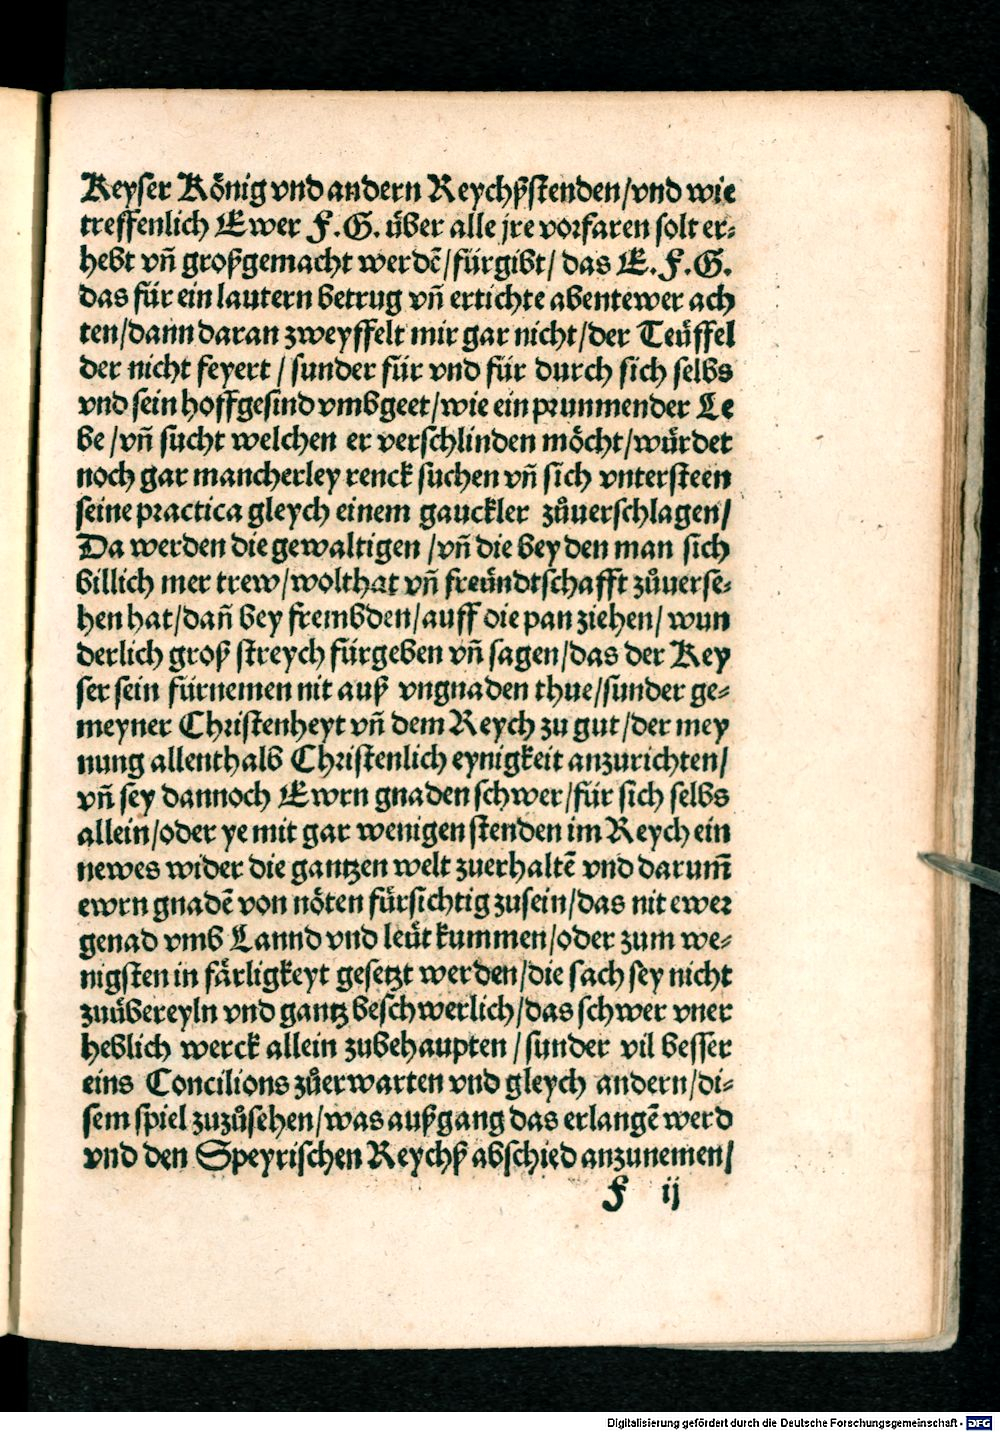 Keyser König vnd andern Reychßstenden/vnd wie
treffenlich Ewer F.G. über alle jre vorfaren solt er-
hebt vñ großgemacht werdē/fürgibt/ das E.F.G.
das für ein lautern betrug vñ ertichte abentewer ach
ten/dann daran zweyffelt mir gar nicht/der Teüffel
der nicht feyert / sunder für vnd für durch sich selbs
vnd sein hoffgesind vmbgeet/wie ein prunmender Le
be /vñ sucht welchen er verschlinden möcht/würdet
noch gar mancherley renck suchen vñ sich vntersteen
seine practica gleych einem gauckler zůuerschlagen/
Da werden die gewaltigen /vñ die bey den man sich
billich mer trew/wolthat vñ freündtschafft zůuerse-
hen hat/dañ bey frembden/auff die pan ziehen/ wun
derlich groß streych fürgeben vñ sagen/das der Key
ser sein fürnemen nit auß vngnaden thue/sunder ge-
meyner Christenheyt vñ dem Reych zu gut/der mey
nung allenthalb Christenlich eynigkeit anzurichten/
vñ sey dannoch Ewrn gnaden schwer/für sich selbs
allein/oder ye mit gar wenigen stenden im Reych ein
newes wider die gantzen welt zuerhaltē vnd darum̄
ewrn gnadē von nöten fürsichtig zusein/das nit ewer
genad vmb Lannd vnd leüt kummen/oder zum we-
nigsten in färligkeyt gesetzt werden/die sach sey nicht
zuübereyln vnd gantz beschwerlich/das schwer vner
heblich werck allein zubehaupten / sunder vil besser
eins Concilions zůerwarten vnd gleych andern/di-
sem spiel zuzůsehen/was außgang das erlangē werd
vnd den Speyrischen Reychß abschied anzunemen/
F ij
Digitalisierung gefördert durch die Deutsche Forschungsgemeinschaft - DFG